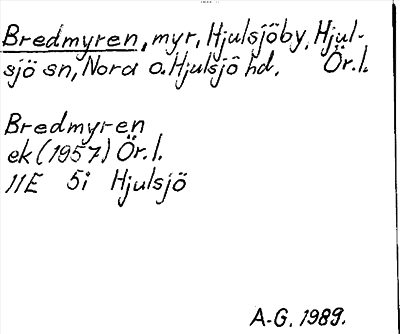 Bredmyren, myr, Hjulsjöby, Hjul-
sjö sn, Nora o. Hjulsjö hd. Ör. l.
Bredmyren
ek (1957) Ör. l.
11E 5i Hjulsjö
A-G. 1989.